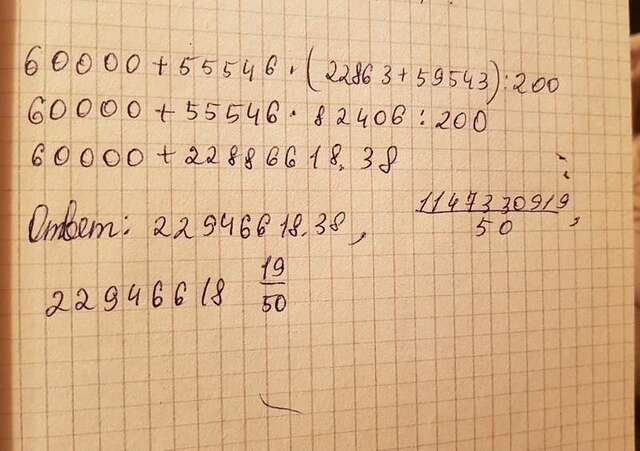 60000 + 55546 · (22863 + 59543) : 200
60000 + 55546 · 82406 : 200
60000 + 22886618.38
Ответ: 22946618.38, 1147330919/50;
22946618 19/50